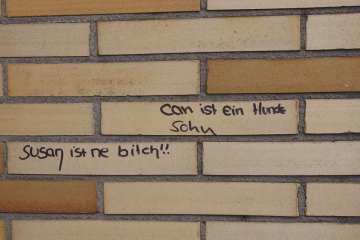 can ist ein Hunde
Sohn
Susan ist ne bitch!!